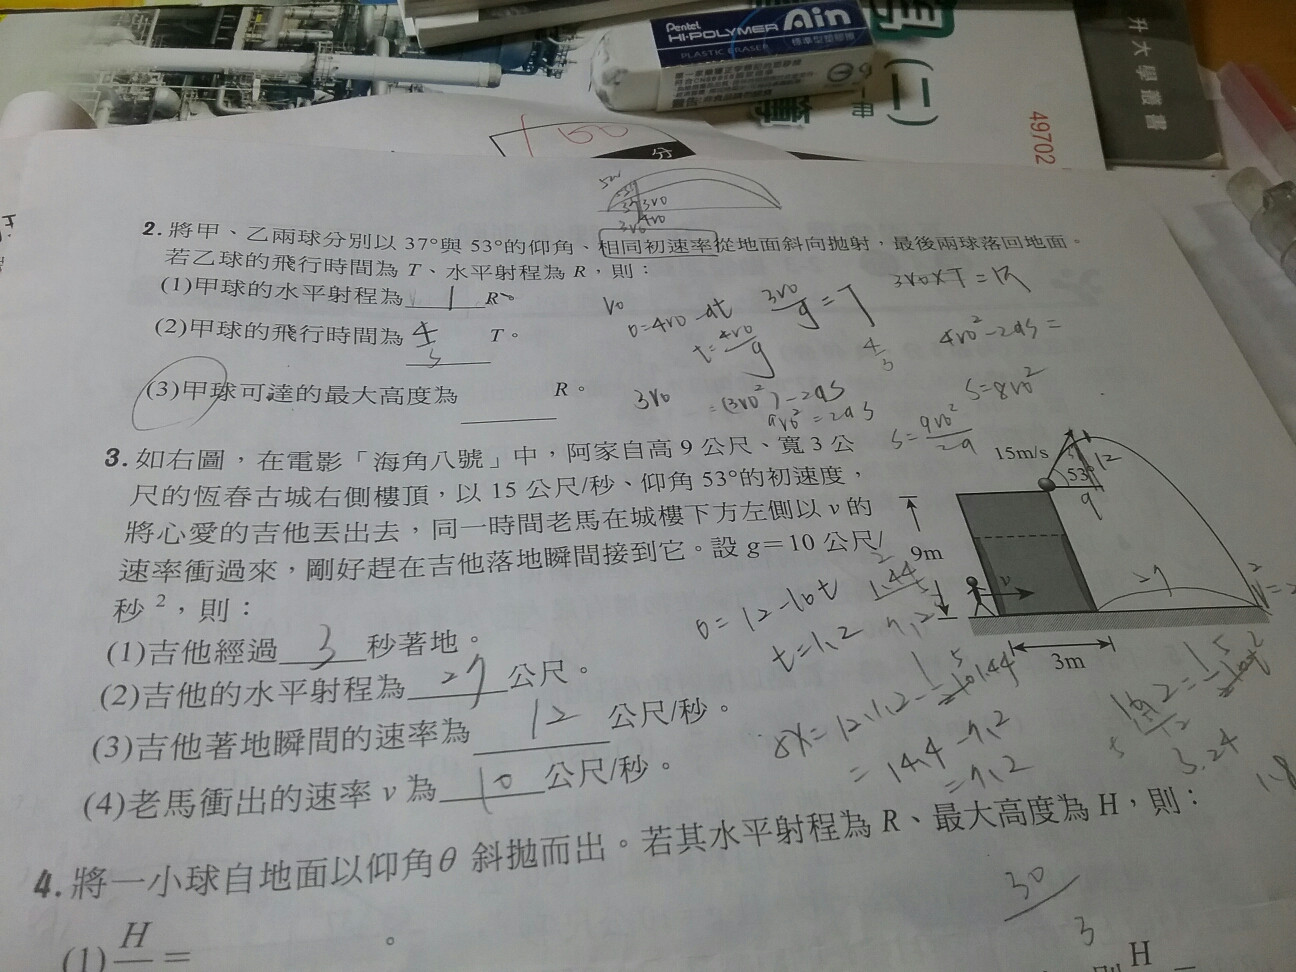 Pentel
Ain
HI-POLYMER
PLASTIC ERASER 標準型塑膠擦
(二)
49702
升大學叢書
分
2. 將甲、乙兩球分別以 37°與 53°的仰角、相同初速率從地面斜向拋射，最後兩球落回地面。
若乙球的飛行時間為 T、水平射程為 R，則：
(1)甲球的水平射程為 1 R。
(2)甲球的飛行時間為 T。
(3)甲球可達的最大高度為 R。
V0
0=4V0-at
t=4V0/g
3V0/g=T
3V0xT=R
4V0²-2as=
S=8V0²
3V0
=(3V0²)-2as
9V0²=2as
S=9V0²/2a
3. 如右圖，在電影「海角八號」中，阿家自高 9 公尺、寬 3 公
尺的恆春古城右側樓頂，以 15 公尺/秒、仰角 53°的初速度，
將心愛的吉他丟出去，同一時間老馬在城樓下方左側以 v 的
速率衝過來，剛好趕在吉他落地瞬間接到它。設 g＝10 公尺/
秒²，則：
(1)吉他經過 3 秒著地。
(2)吉他的水平射程為 27 公尺。
(3)吉他著地瞬間的速率為 12 公尺/秒。
(4)老馬衝出的速率 v 為 10 公尺/秒。
15m/s
53°
12
9
9m
v
27
3m
0=12-10t
t=1.2
1.44
7.2
=14.4-7.2
=7.2
3.24
1.8
30
3
4. 將一小球自地面以仰角θ 斜拋而出。若其水平射程為 R、最大高度為 H，則：
(1) H = 。
H